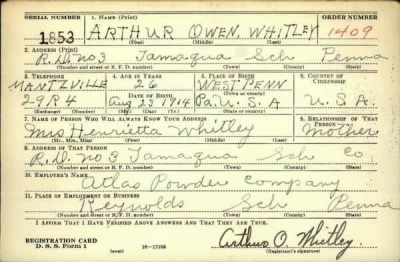 SERIAL NUMBER 1. NAME (Print) ORDER NUMBER
1853 ARTHUR OWEN WHITLEY 1409
(First) (Middle) (Last)
2. ADDRESS (Print)
R.D. NO 3 Tamaqua Sch Penna
(Number and street or R. F. D. number) (Town) (County) (State)
3. TELEPHONE 4. AGE IN YEARS 5. PLACE OF BIRTH 6. COUNTRY OF CITIZENSHIP
MANTZVILLE 26 WEST PENN
(Town or county)
DATE OF BIRTH
29R4 Aug 23 1914 Pa. U.S.A U.S.A.
(Exchange) (Number) (Mo.) (Day) (Yr.) (State or country)
7. NAME OF PERSON WHO WILL ALWAYS KNOW YOUR ADDRESS 8. RELATIONSHIP OF THAT PERSON
Mrs Henrietta Whitley Mother
(Mr., Mrs., Miss) (First) (Middle) (Last)
9. ADDRESS OF THAT PERSON
R.D. no 3 Tamaqua Sch Co
(Number and street or R. F. D. number) (Town) (County) (State)
10. EMPLOYER'S NAME
Atlas Powder Company
11. PLACE OF EMPLOYMENT OR BUSINESS
Reynolds Sch Penna
(Number and street or R. F. D. number) (Town) (County) (State)
I AFFIRM THAT I HAVE VERIFIED ABOVE ANSWERS AND THAT THEY ARE TRUE.
REGISTRATION CARD
D. S. S. Form 1 (over) 16—17105 Arthur O. Whitley